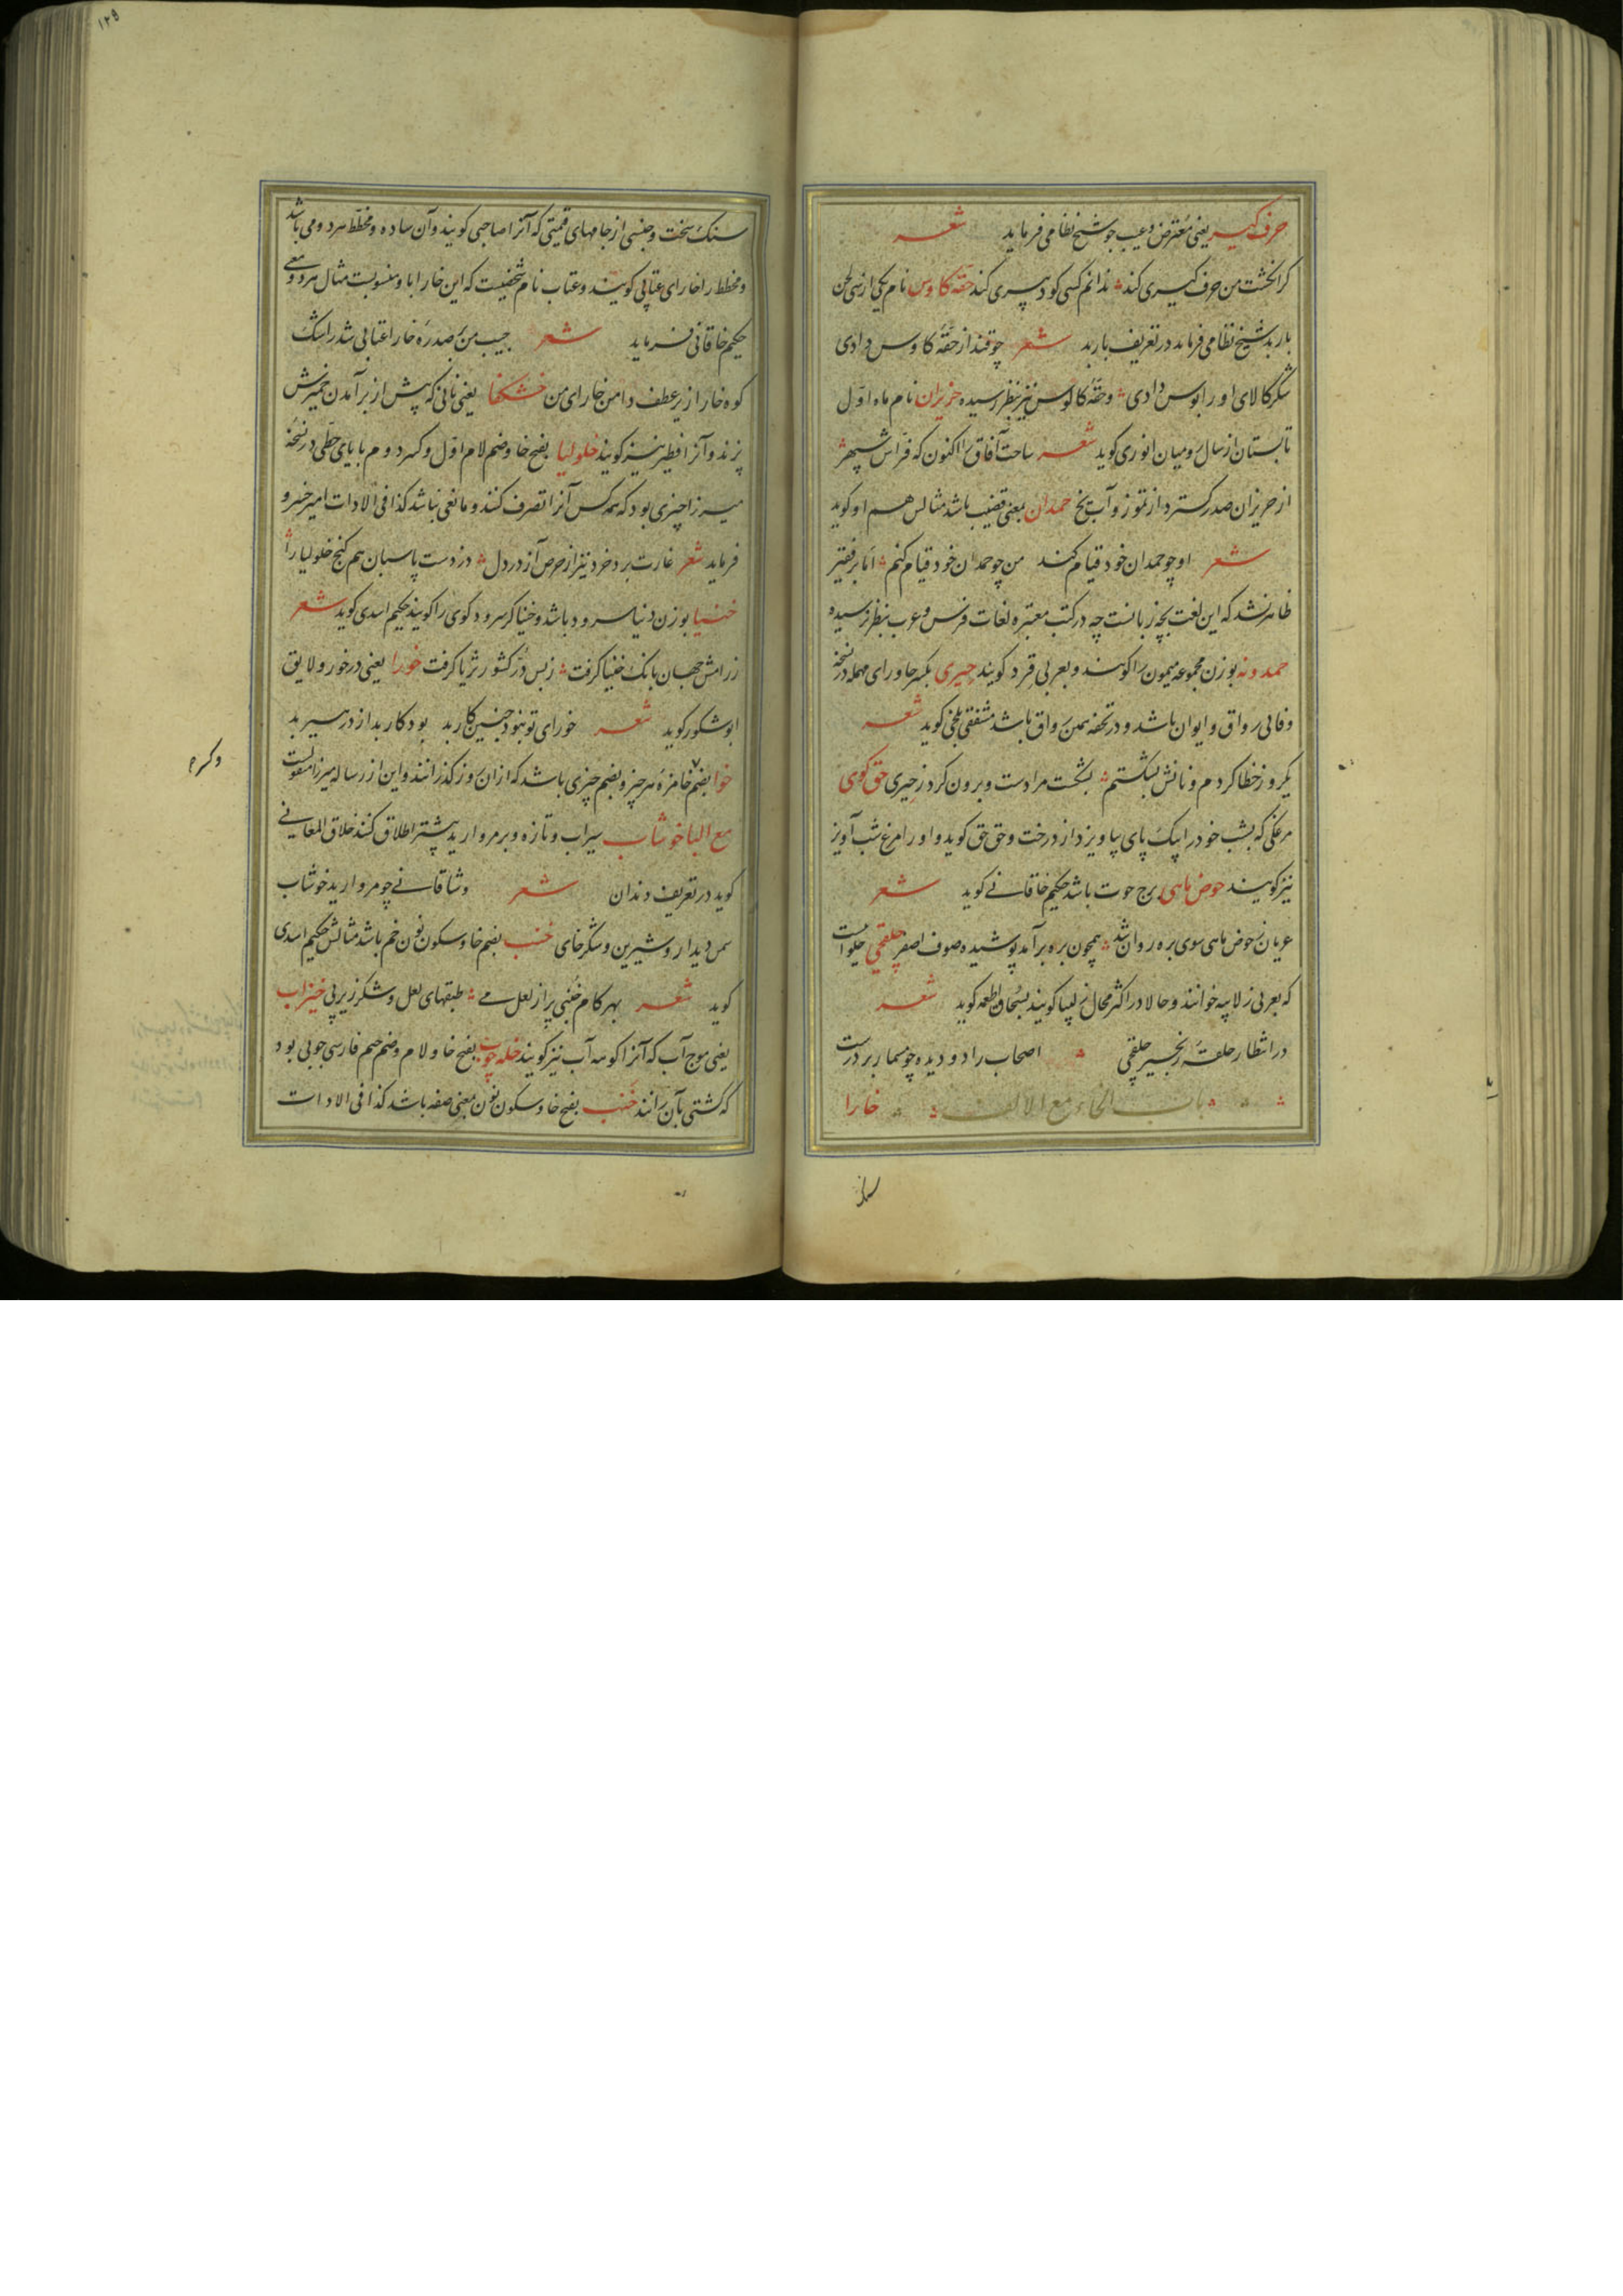 حرف کیر یعنی معترض و عیب جو شیخ نظامی فرماید شعر
کر انکشت من حرف کیری کند ندانم کسی کو دبیری کند حقه کاوس نام یکی از سی لحن
باربد شیخ نظامی فرماید در تعریف باربد شعر چو قند از حقه کاوس دادی
شکر کالای او را بوس دادی و حقه کالوس نیز بنظر رسیده حزیران نام ماه اول
تابستان از سال رومیان انوری کوید شعر ساحت آفاق را اکنون که فراش سپهر
از حزیران صدر کسترد از تموز و آب نخ حمدان بمعنی قضیب باشد مثالش هم او کوید
شعر او چو حمدان خود قیام کند من چو حمدان خود قیام کنم اما بر فقیر
ظاهر نشد که این لغت بچه زبانست چه در کتب معتبره لغات فرس و عرب بنظر نرسیده
حمدونه بوزن مجموعه میمون را کویند و بعربی قرد کویند حیری بکسر حا و رای مهمله در نسخه
وفائی رواق و ایوان باشد و در تحفه بمن رواق باشد مشفقی بلخی کوید شعر
یکروز خطا کردم و نانش بشکستم بشکست مرا دست و برون کرد ز حیری حق کوی
مرغکی که بشب خود را بیک پای بیاویزد از درخت و حق حق کوید و او را مرغ شب آویز
نیز کویند حوض ماهی برج حوت باشد حکیم خاقانی کوید شعر
عریان ز حوض ماهی سوی بره روان شد همچون بره برآمد پوشیده صوف اصفر حلقچی حلوائیست
که بعربی زلابیه خوانند و حالا در اکثر محال زلیبا کویند بسحاق اطعمه کوید شعر
در انتظار حلقه زنجیر حلقچی اصحاب را دو دیده چو مسمار بر درست
باب الخاء مع الالف خارا
سنک
سنک سخت و جنسی از جامهای قیمتی که آنرا صاحبی کویند و آن ساده و مخطط هر دو می باشد
و مخطط را خارای عتابی کویند و عتاب نام شخصیست که این خارا باو منسوبست مثال هر دو معنی
حکیم خاقانی فرماید شعر جیب من بر صدره خارا عتابی شد ز اشک
کوه خارا زیر عطف دامن خارای من خشکفا یعنی نانی که پیش از برآمدن خمیرش
پزند و آنرا فطیر نیز کویند خلولیا بفتح خا و ضم لام اول و کسر دوم با یای حطی در نسخه
میرزا چیزی بود که همه کس آنرا تصرف کنند و مانعی نباشد کذا فی الادات امیر خسرو
فرماید شعر غارت برد خرد نیز از حرص آز در دل دزدست پاسبان هم کنج خلولیا را
خنیا بوزن دنیا سرود باشد و خنیاکر سرود کوی را کویند حکیم اسدی کوید شعر
ز رامش جهان بانک خنیا کرفت ز بس در کشور ثریا کرفت خورا یعنی در خور و لایق
ابو شکور کوید شعر خورای تو نبود چنین کار بد بود کار بد از در هیر بد
خوا بضم خا مزه هر چیز و بضم چیزی باشد که از آن روز کذرانند و این از رساله میرزا منقولست
مع البا خوشاب سیراب و تازه و بر مروارید بیشتر اطلاق کنند خلاق المعانی
کوید در تعریف دندان شعر وشاقانی چو مروارید خوشاب
سمن دیدار و شیرین و شکر خای خنب بضم خا و سکون نون خم باشد مثالش حکیم اسدی
کوید شعر بهر کام خنبی پر از لعل می طبقهای لعل و شکر زیر پی خیزاب
یعنی موج آب که آنرا کوهه آب نیز کویند خله چوب بفتح خا و لام و ضم جیم فارسی چوبی بود
که کشتی بآن رانند خنب بفتح خا و سکون نون بمعنی صفه باشد کذا فی الادات